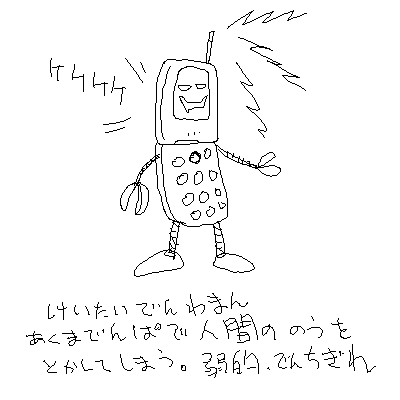 ケケケケ
けいたいでんわまん
あくまでんぱで人間ののうを
とかしてしまう。弱的.でんちぎれ